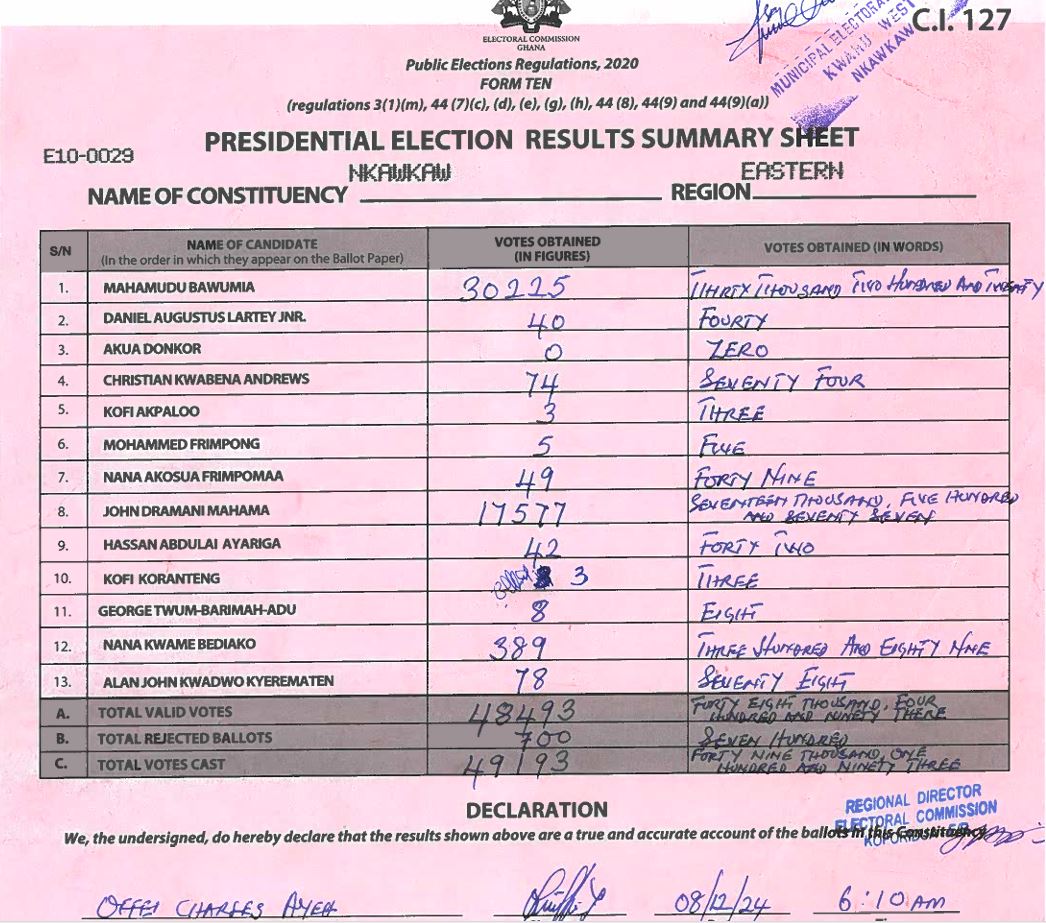 ELECTORAL COMMISSION
GHANA
C.I. 127
MUNICIPAL ELECTORAL
KWAHU WEST
NKAWKAW
Public Elections Regulations, 2020
FORM TEN
(regulations 3(1)(m), 44 (7)(c), (d), (e), (g), (h), 44 (8), 44(9) and 44(9)(a))
PRESIDENTIAL ELECTION RESULTS SUMMARY SHEET
E10-0029
NAME OF CONSTITUENCY NKAWKAW REGION EASTERN
S/N NAME OF CANDIDATE (In the order in which they appear on the Ballot Paper) VOTES OBTAINED (IN FIGURES) VOTES OBTAINED (IN WORDS)
1. MAHAMUDU BAWUMIA 30225 THIRTY THOUSAND TWO HUNDRED AND TWENTY
2. DANIEL AUGUSTUS LARTEY JNR. 40 FOURTY
3. AKUA DONKOR 0 ZERO
4. CHRISTIAN KWABENA ANDREWS 74 SEVENTY FOUR
5. KOFI AKPALOO 3 THREE
6. MOHAMMED FRIMPONG 5 FIVE
7. NANA AKOSUA FRIMPOMAA 49 FORTY NINE
8. JOHN DRAMANI MAHAMA 17577 SEVENTEEN THOUSAND, FIVE HUNDRED
AND SEVENTY SEVEN
9. HASSAN ABDULAI AYARIGA 42 FORTY TWO
10. KOFI KORANTENG 3 THREE
11. GEORGE TWUM-BARIMAH-ADU 8 EIGHT
12. NANA KWAME BEDIAKO 389 THREE HUNDRED AND EIGHTY NINE
13. ALAN JOHN KWADWO KYEREMATEN 78 SEVENTY EIGHT
A. TOTAL VALID VOTES 48493 FORTY EIGHT THOUSAND, FOUR
HUNDRED AND NINETY THERE
B. TOTAL REJECTED BALLOTS 700 SEVEN HUNDRED
C. TOTAL VOTES CAST 49193 FORTY NINE THOUSAND, ONE
HUNDRED AND NINETY THREE
DECLARATION
REGIONAL DIRECTOR
ELECTORAL COMMISSION
We, the undersigned, do hereby declare that the results shown above are a true and accurate account of the ballots in this Constituency
OFFEI CHARLES 08/12/24 6:10 AM